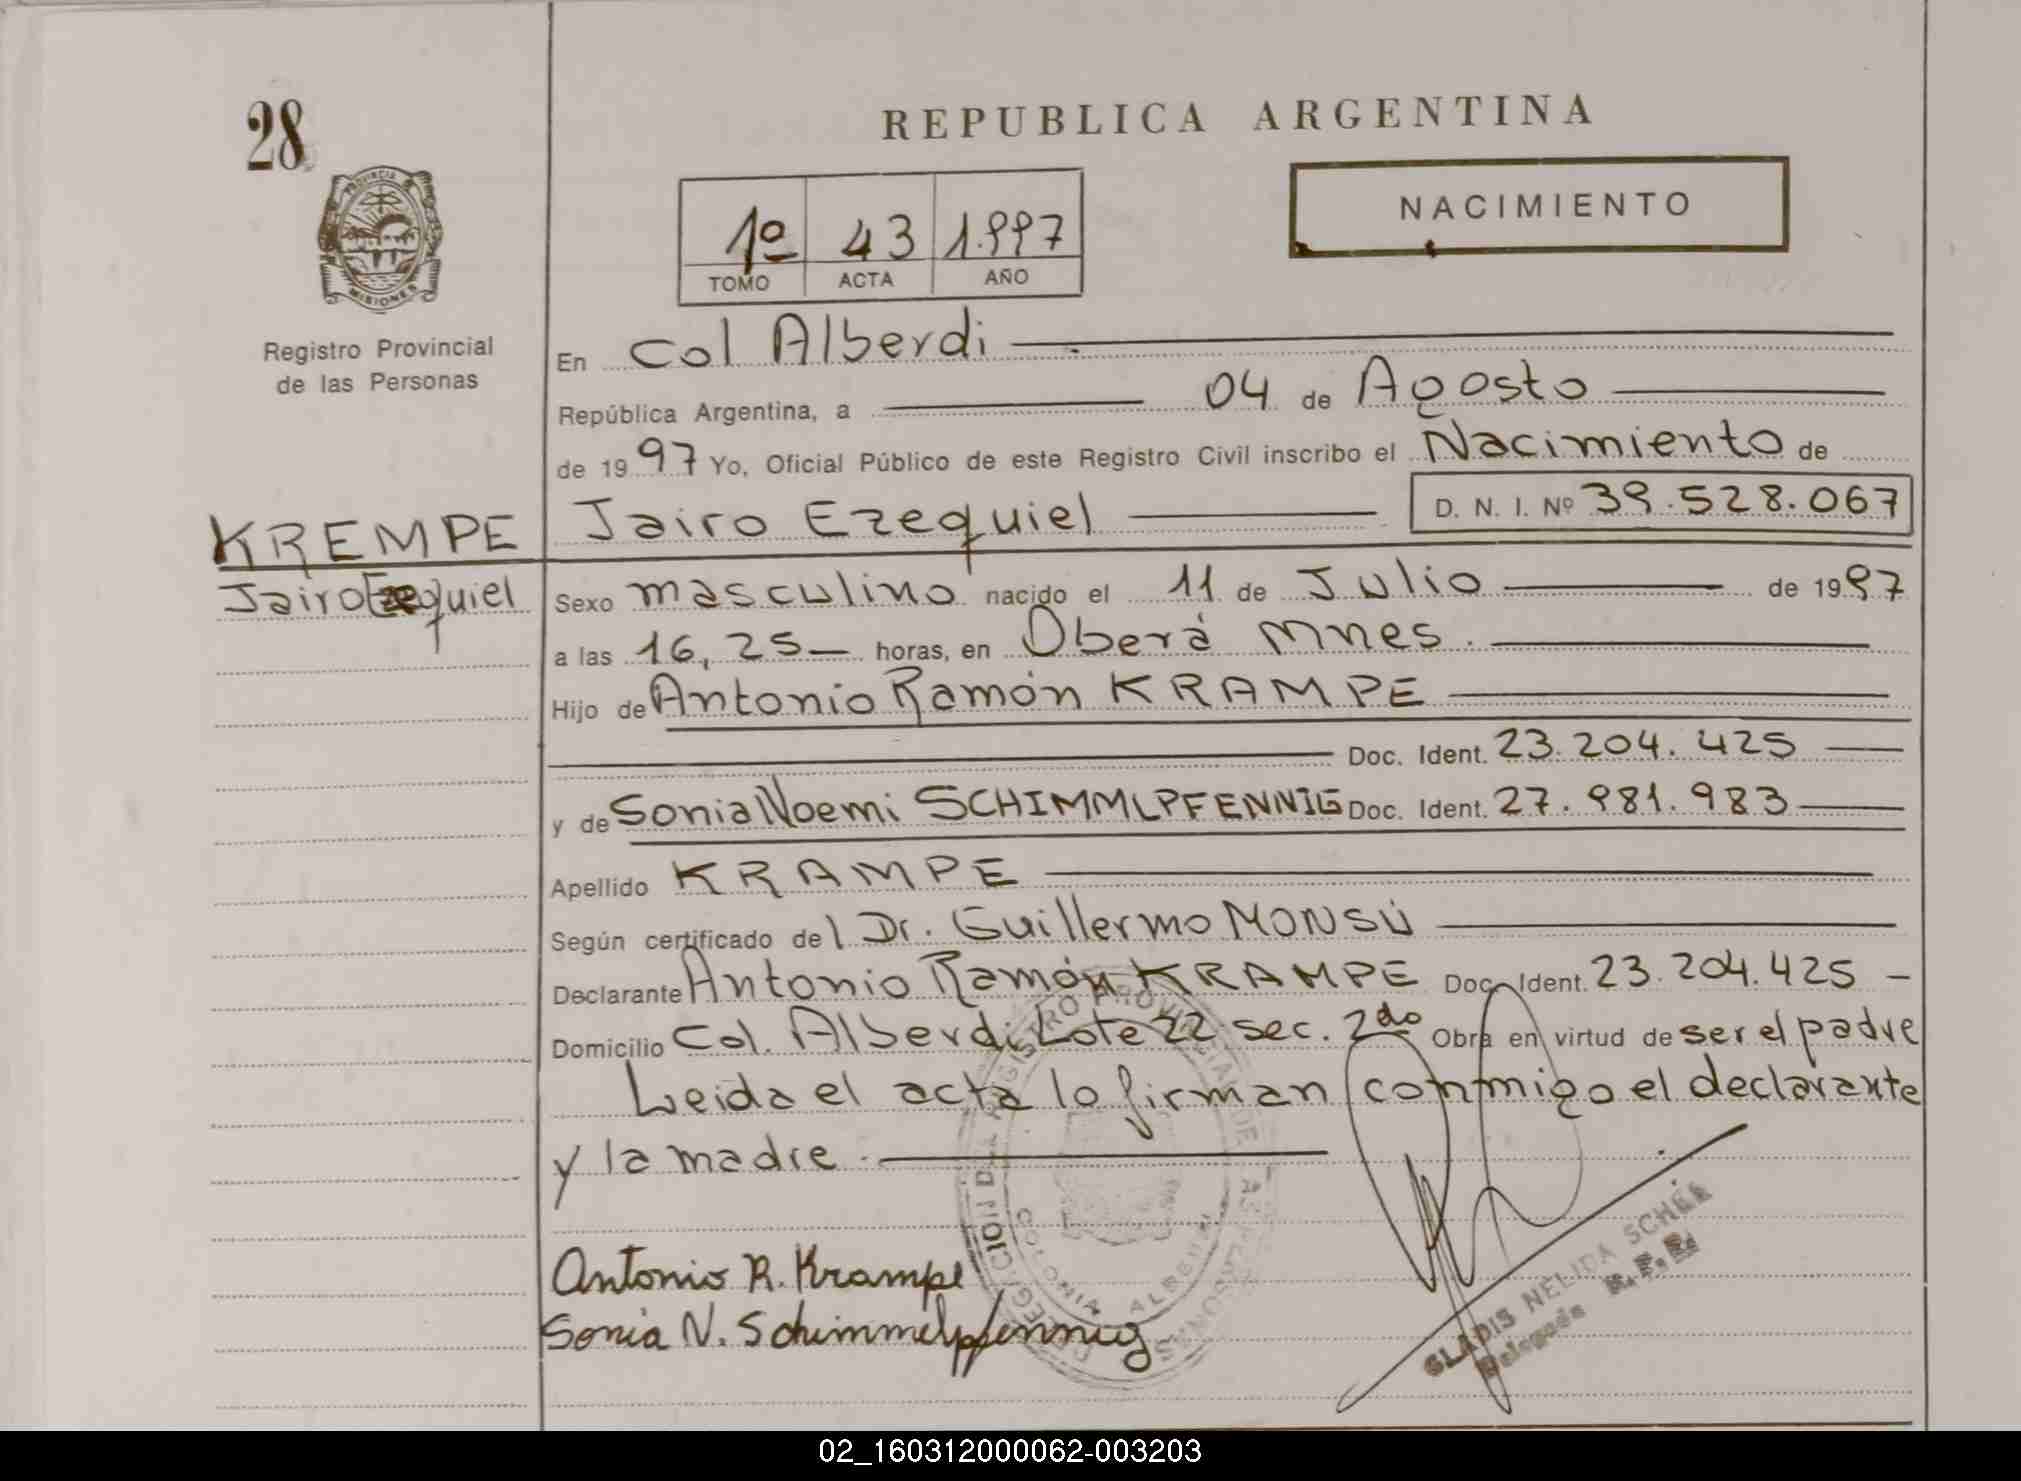 28
REPUBLICA ARGENTINA
NACIMIENTO
1º 43 1.997
TOMO ACTA AÑO
PROVINCIA
MISIONES
Registro Provincial
de las Personas
En Col Alberdi
República Argentina, a 04 de Agosto
de 1997 Yo, Oficial Público de este Registro Civil inscribo el Nacimiento de
KREMPE
Jairo Ezequiel D. N. I. Nº 39.528.067
Jairo Ezequiel
Sexo masculino nacido el 11 de Julio de 1997
a las 16,25 horas, en Oberá Mnes.
Hijo de Antonio Ramón KRAMPE
Doc. Ident. 23.204.425
y de Sonia Noemi SCHIMMLPFENNIG Doc. Ident. 27.981.983
Apellido KRAMPE
Según certificado del Dr. Guillermo MONSÚ
Declarante Antonio Ramón KRAMPE Doc. Ident. 23.204.425
Domicilio Col. Alberdi Lote 22 sec. 2do Obra en virtud de ser el padre
Leida el acta lo firman conmigo el declarante
y la madre.
Antonio R. Krampe
Sonia N. Schimmelpfennig
DELEGACION DEL REGISTRO PROVINCIAL DE LAS PERSONAS
COLONIA ALBERDI
GLADIS NELIDA SCHÉE
Delegada R.P.P.
02_160312000062-003203